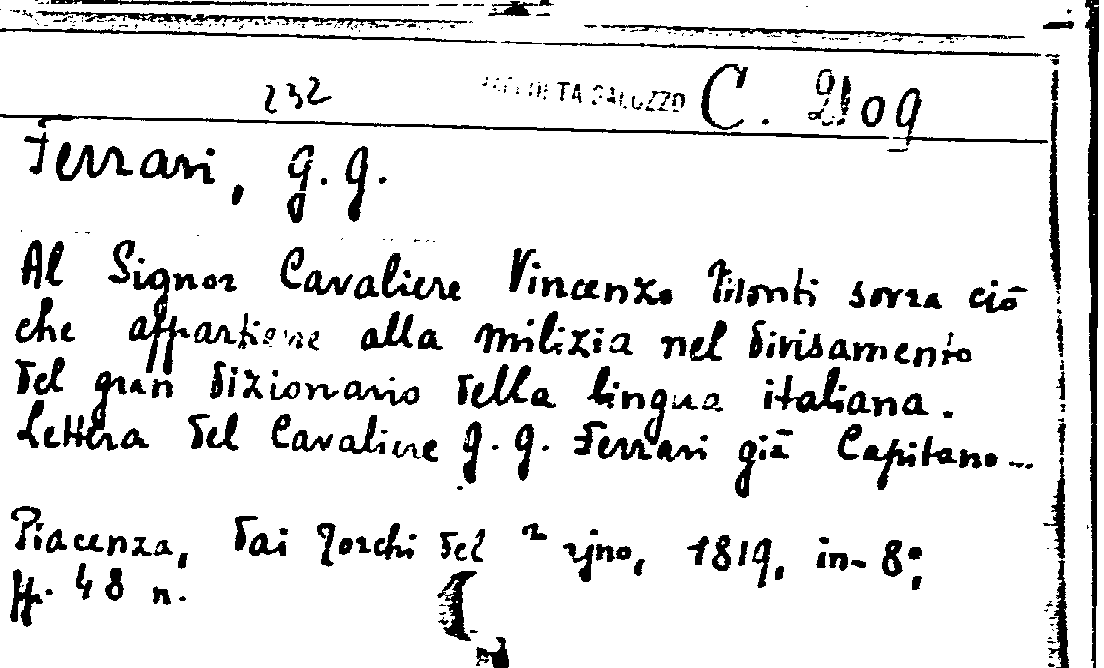 232 RACCOLTA SALUZZO C. 2109
Ferrari, G. G.
Al Signor Cavaliere Vincenzo Monti sovra ciò
che appartiene alla milizia nel divisamento
del gran dizionario della lingua italiana.
Lettera del Cavaliere G. G. Ferrari già Capitano...
Piacenza, dai Torchi del Majno, 1819, in-8°;
pp. 48 n.